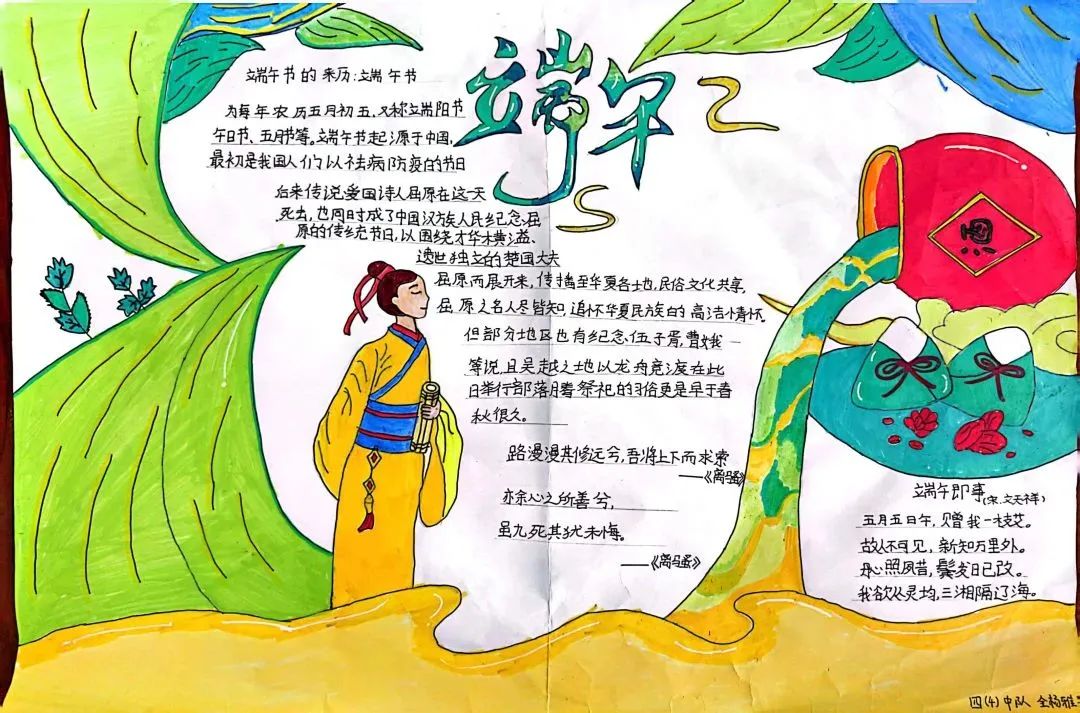 端午
端午节的来历:端午节
为每年农历五月初五,又称端阳节
午日节、五月节等。端午节起源于中国,
最初是我国人们以祛病防疫的节日
后来传说爱国诗人屈原在这一天
死去,也同时成了中国汉族人民纪念屈
原的传统节日,以围绕才华横溢、
遗世独立的楚国大夫
屈原而展开来,传播至华夏各地,民俗文化共享,
屈原之名人尽皆知,追怀华夏民族的高洁情怀。
但部分地区也有纪念、伍子胥,曹娥
等说,且吴越之地以龙舟竞渡在此
日举行部落月替祭祀的习俗更是早于春
秋很久。
路漫漫其修远兮,吾将上下而求索
——《离骚》
亦余心之所善兮,
虽九死其犹未悔。
——《离骚》
端午即事(宋.文天祥)
五月五日午,赠我一枝艾。
故人不可见,新知万里外。
丹心照夙昔,鬓发日已改。
我欲从灵均,三湘隔辽海。
四(4)中队 杨雅